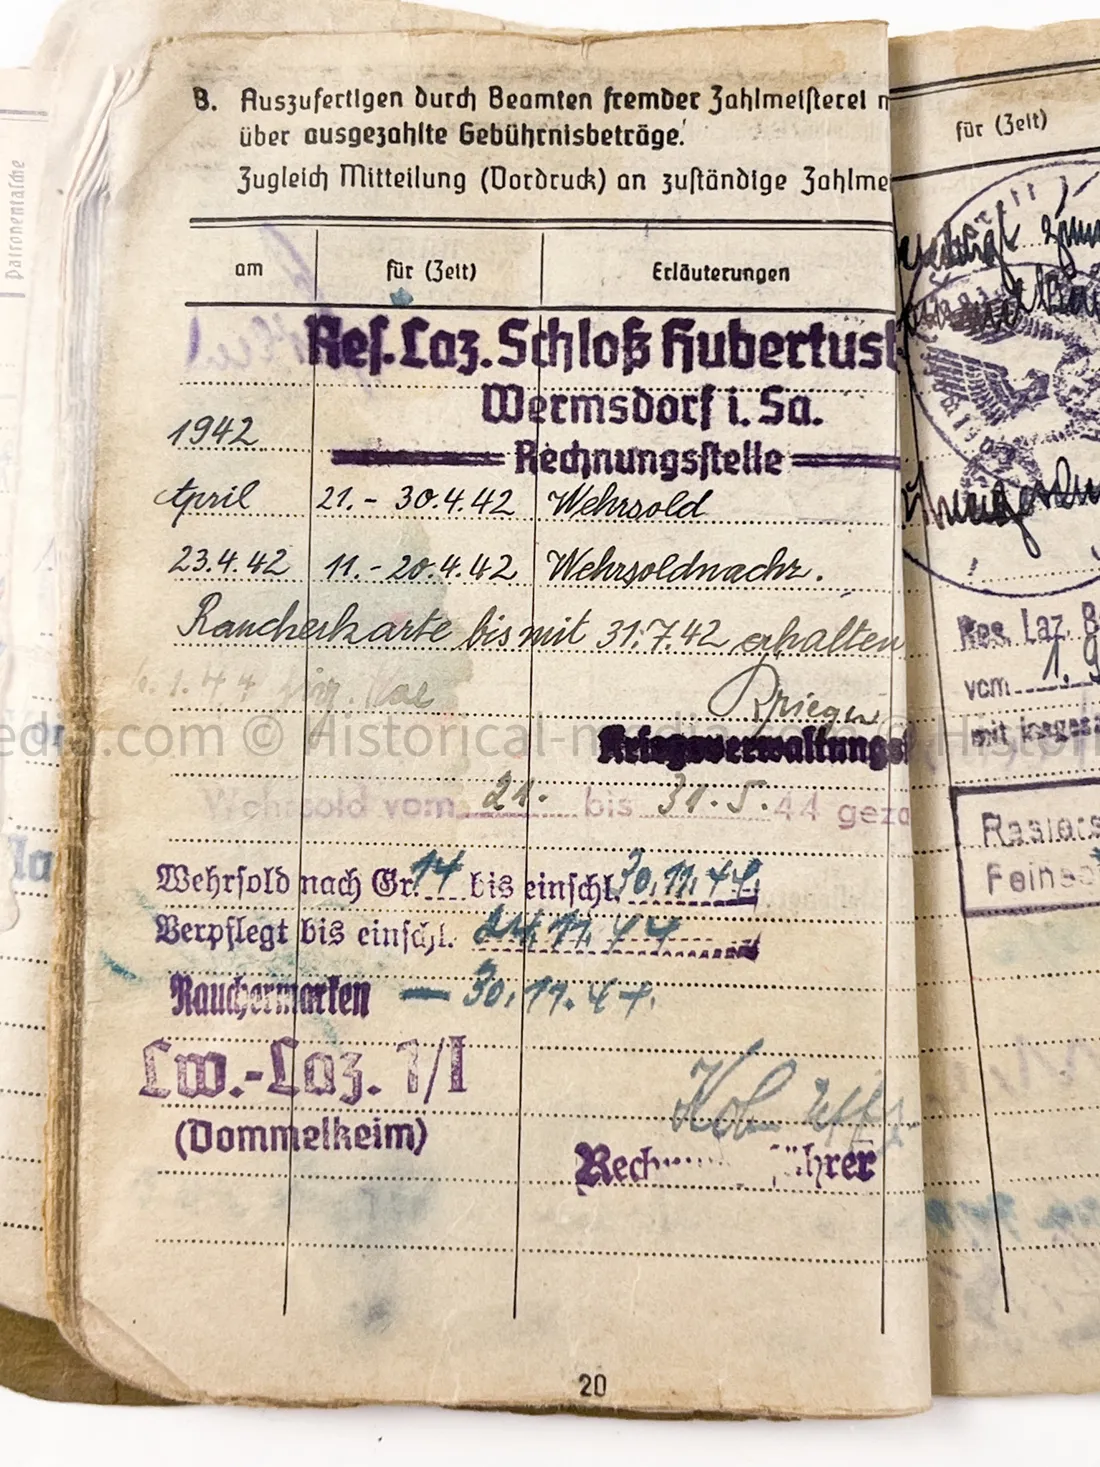 B. Auszufertigen durch Beamten fremder Zahlmeisterei
über ausgezahlte Gebührnisbeträge.
Zugleich Mitteilung (Vordruck) an zuständige Zahlme
am für (Zeit) Erläuterungen
Res. Laz. Schloß Hubertusb
Wermsdorf i. Sa.
1942
Rechnungsstelle
April 21. - 30.4.42 Wehrsold
23.4.42 11. - 20.4.42 Wehrsoldnachz.
Raucherkarte bis mit 31.7.42 erhalten
Krieger
Kriegsverwaltungs
© Historical-media
Wehrsold vom 21. bis 31.5.44 geza
Wehrsold nach Gr. 14 bis einschl. 30.11.44
Verpflegt bis einschl. 24.11.44
Rauchermarken - 30.11.44.
Lw.-Laz. 7/I
(Dommelkeim)
20
Patronentasche
für (Zeit)
Res. Laz. B
vom 1.9
mit insgesa